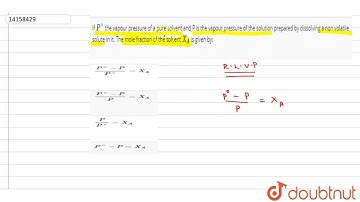 14158429
If P° the vapour pressure of a pure solvent and P is the vapour pressure of the solution prepared by dissolving a non volatile
solute in it. The mole fraction of the solvent X_A is given by:
P° − P / P° = X_A
R.L.V.P
P° − P / P = X_A
P° − P / P = X_A
P / P° = X_A
P° − P = X_A
doubtnut